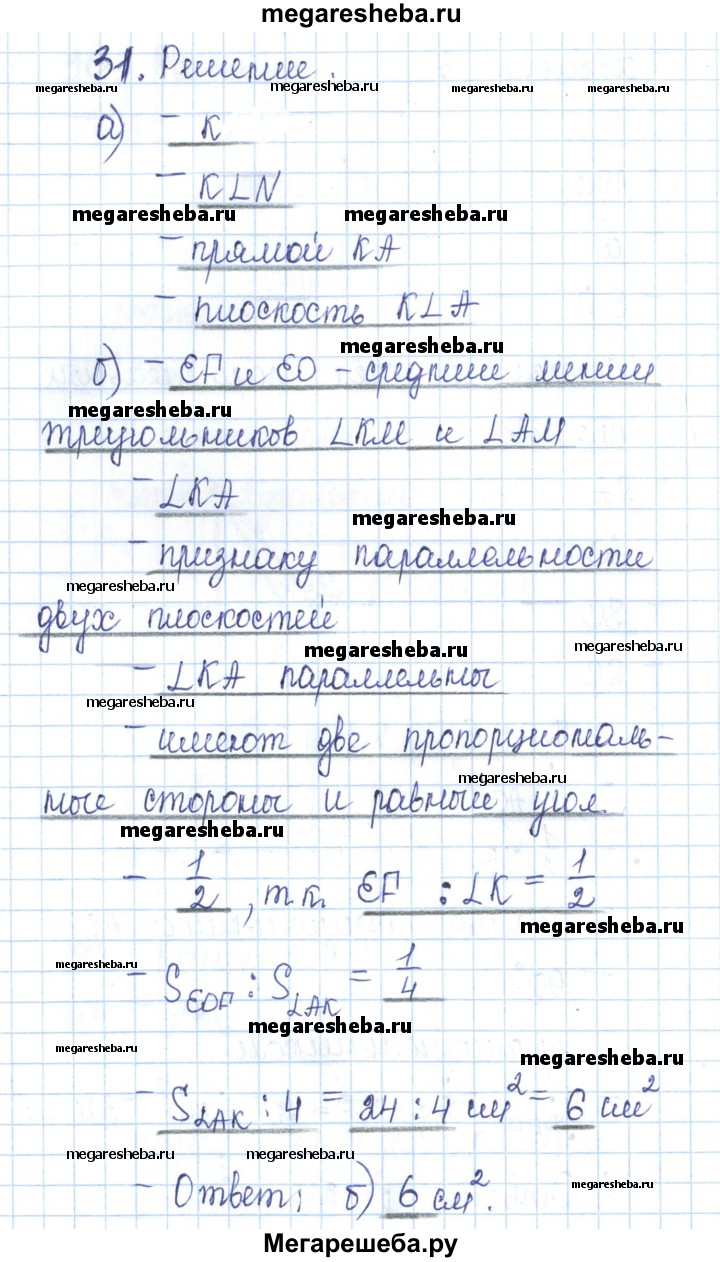 megaresheba.ru
31. Решение.
megaresheba.ru megaresheba.ru megaresheba.ru megaresheba.ru
а) – К
– KLN
megaresheba.ru megaresheba.ru
– прямой КА
– плоскость KLA
megaresheba.ru
б) – EF и EO – средние линии
megaresheba.ru
треугольников LKM и LAM
– LKA
megaresheba.ru
– признаку параллельности
megaresheba.ru
двух плоскостей
megaresheba.ru megaresheba.ru
– LKA параллельны
megaresheba.ru
– имеют две пропорциональ-
megaresheba.ru
ные стороны и равный угол.
megaresheba.ru
– 1/2, т.к. EF : LK = 1/2
megaresheba.ru
megaresheba.ru
– S_EOF : S_LAK = 1/4
megaresheba.ru
megaresheba.ru megaresheba.ru
– S_LAK : 4 = 24 : 4 см² = 6 см²
megaresheba.ru megaresheba.ru
– Ответ: б) 6 см².
megaresheba.ru
Мегарешеба.ру